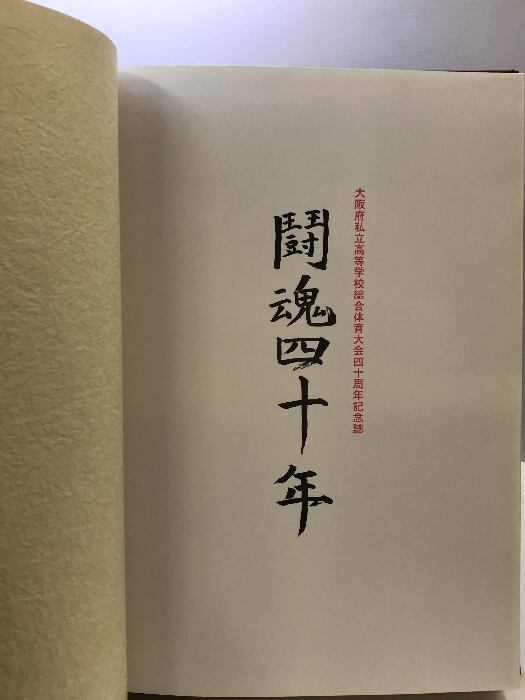 大阪府私立高等学校総合体育大会四十周年記念誌
鬪魂四十年